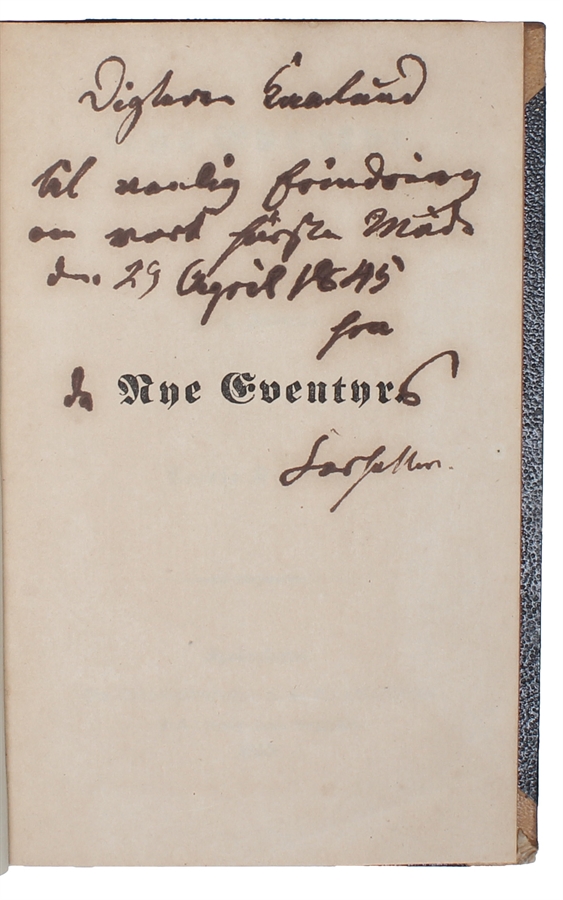 Digteren Kaalund
til venlig Erindring
om vort første Møde
den 29 April 1845
fra
de Nye Eventyr.s
Forfatter.